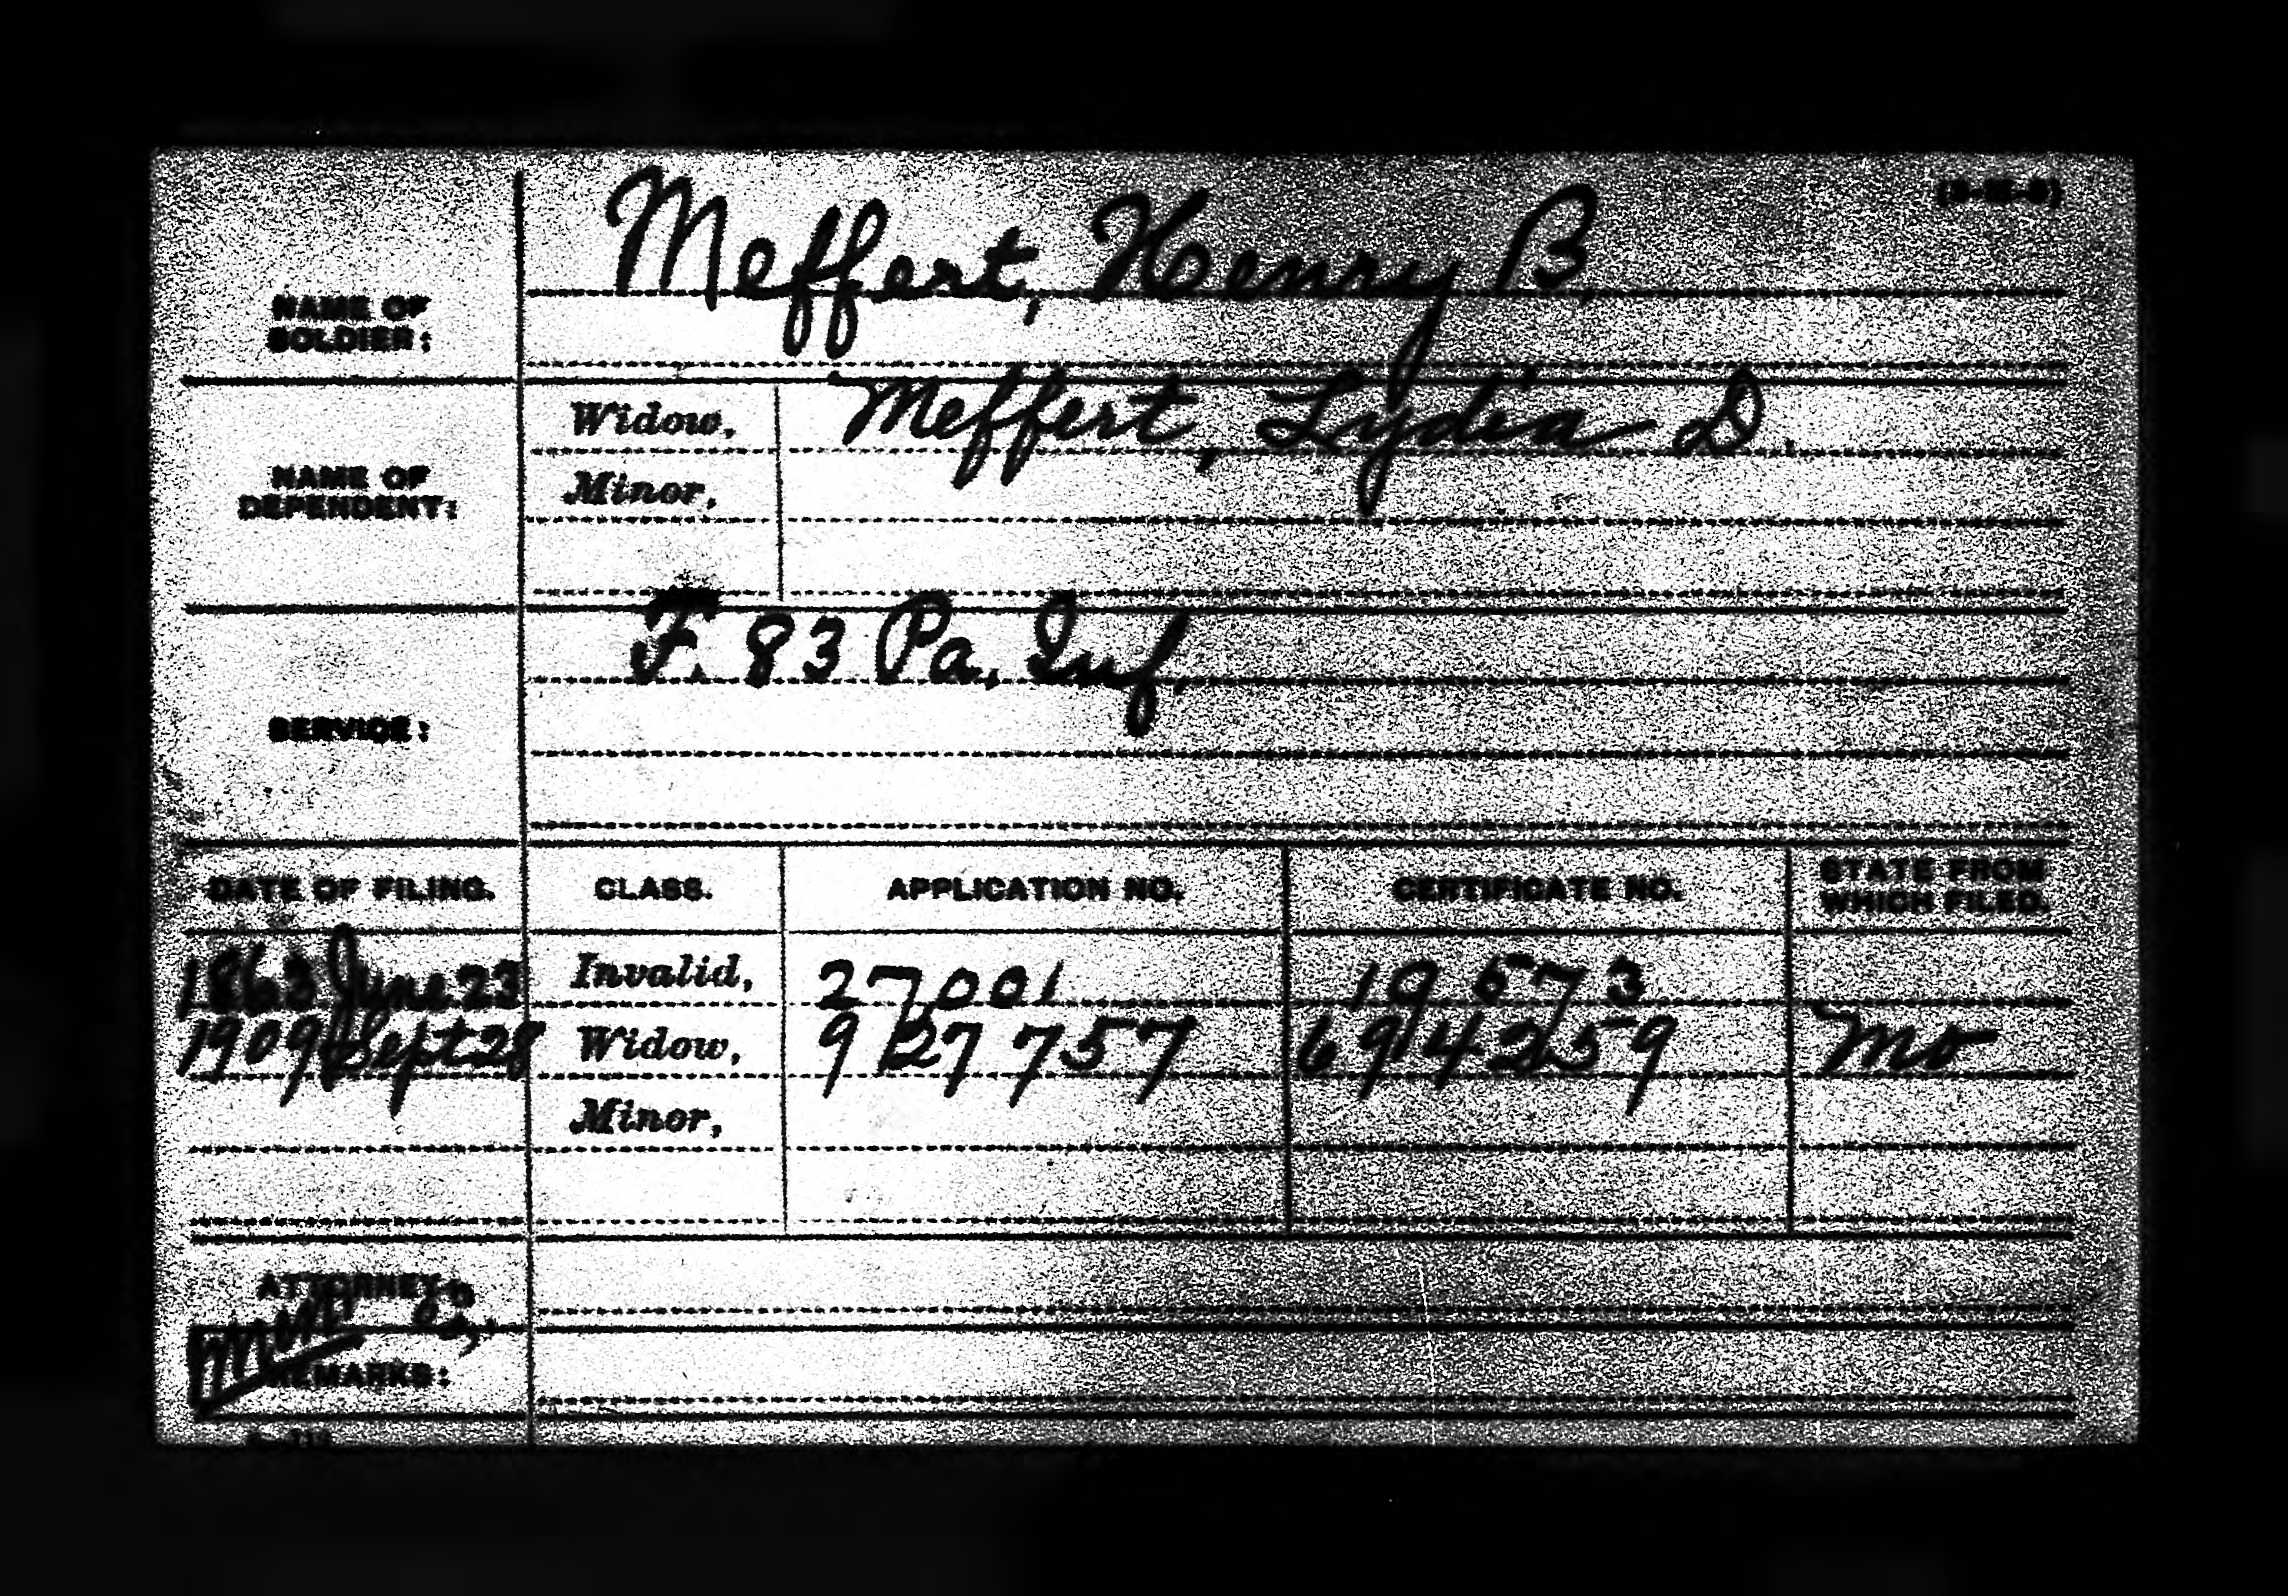 Meffert, Henry B.
NAME OF
SOLDIER:
Widow, Meffert, Lydia D.
NAME OF
DEPENDENT:
Minor,
F. 83 Pa. Inf.
SERVICE:
DATE OF FILING. CLASS. APPLICATION NO. CERTIFICATE NO. STATE FROM
WHICH FILED.
1863 June 23 Invalid, 27001 19 573
1909 Sept 28 Widow, 927 757 694259 Mo
Minor,
ATTORNEY:
REMARKS: